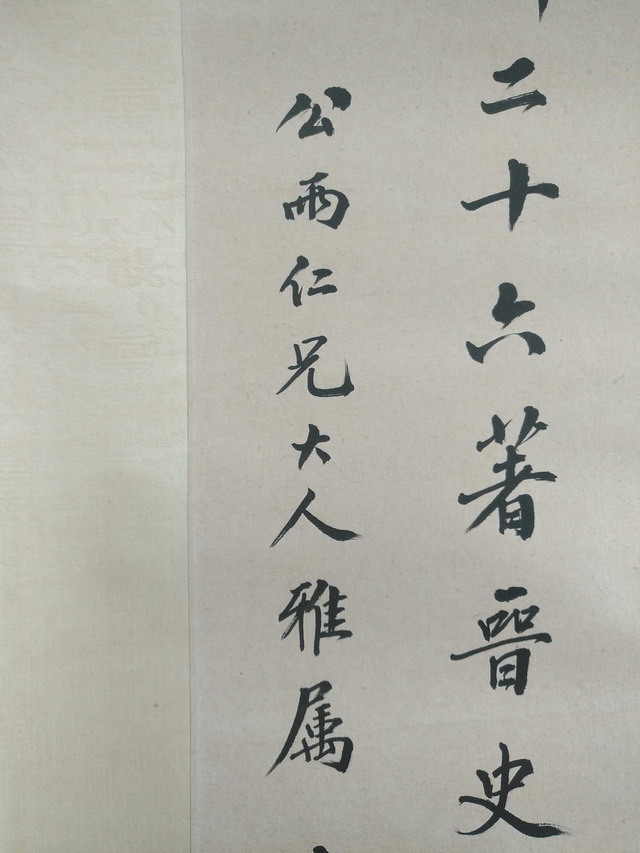 二十六著晉史
公雨仁兄大人雅属